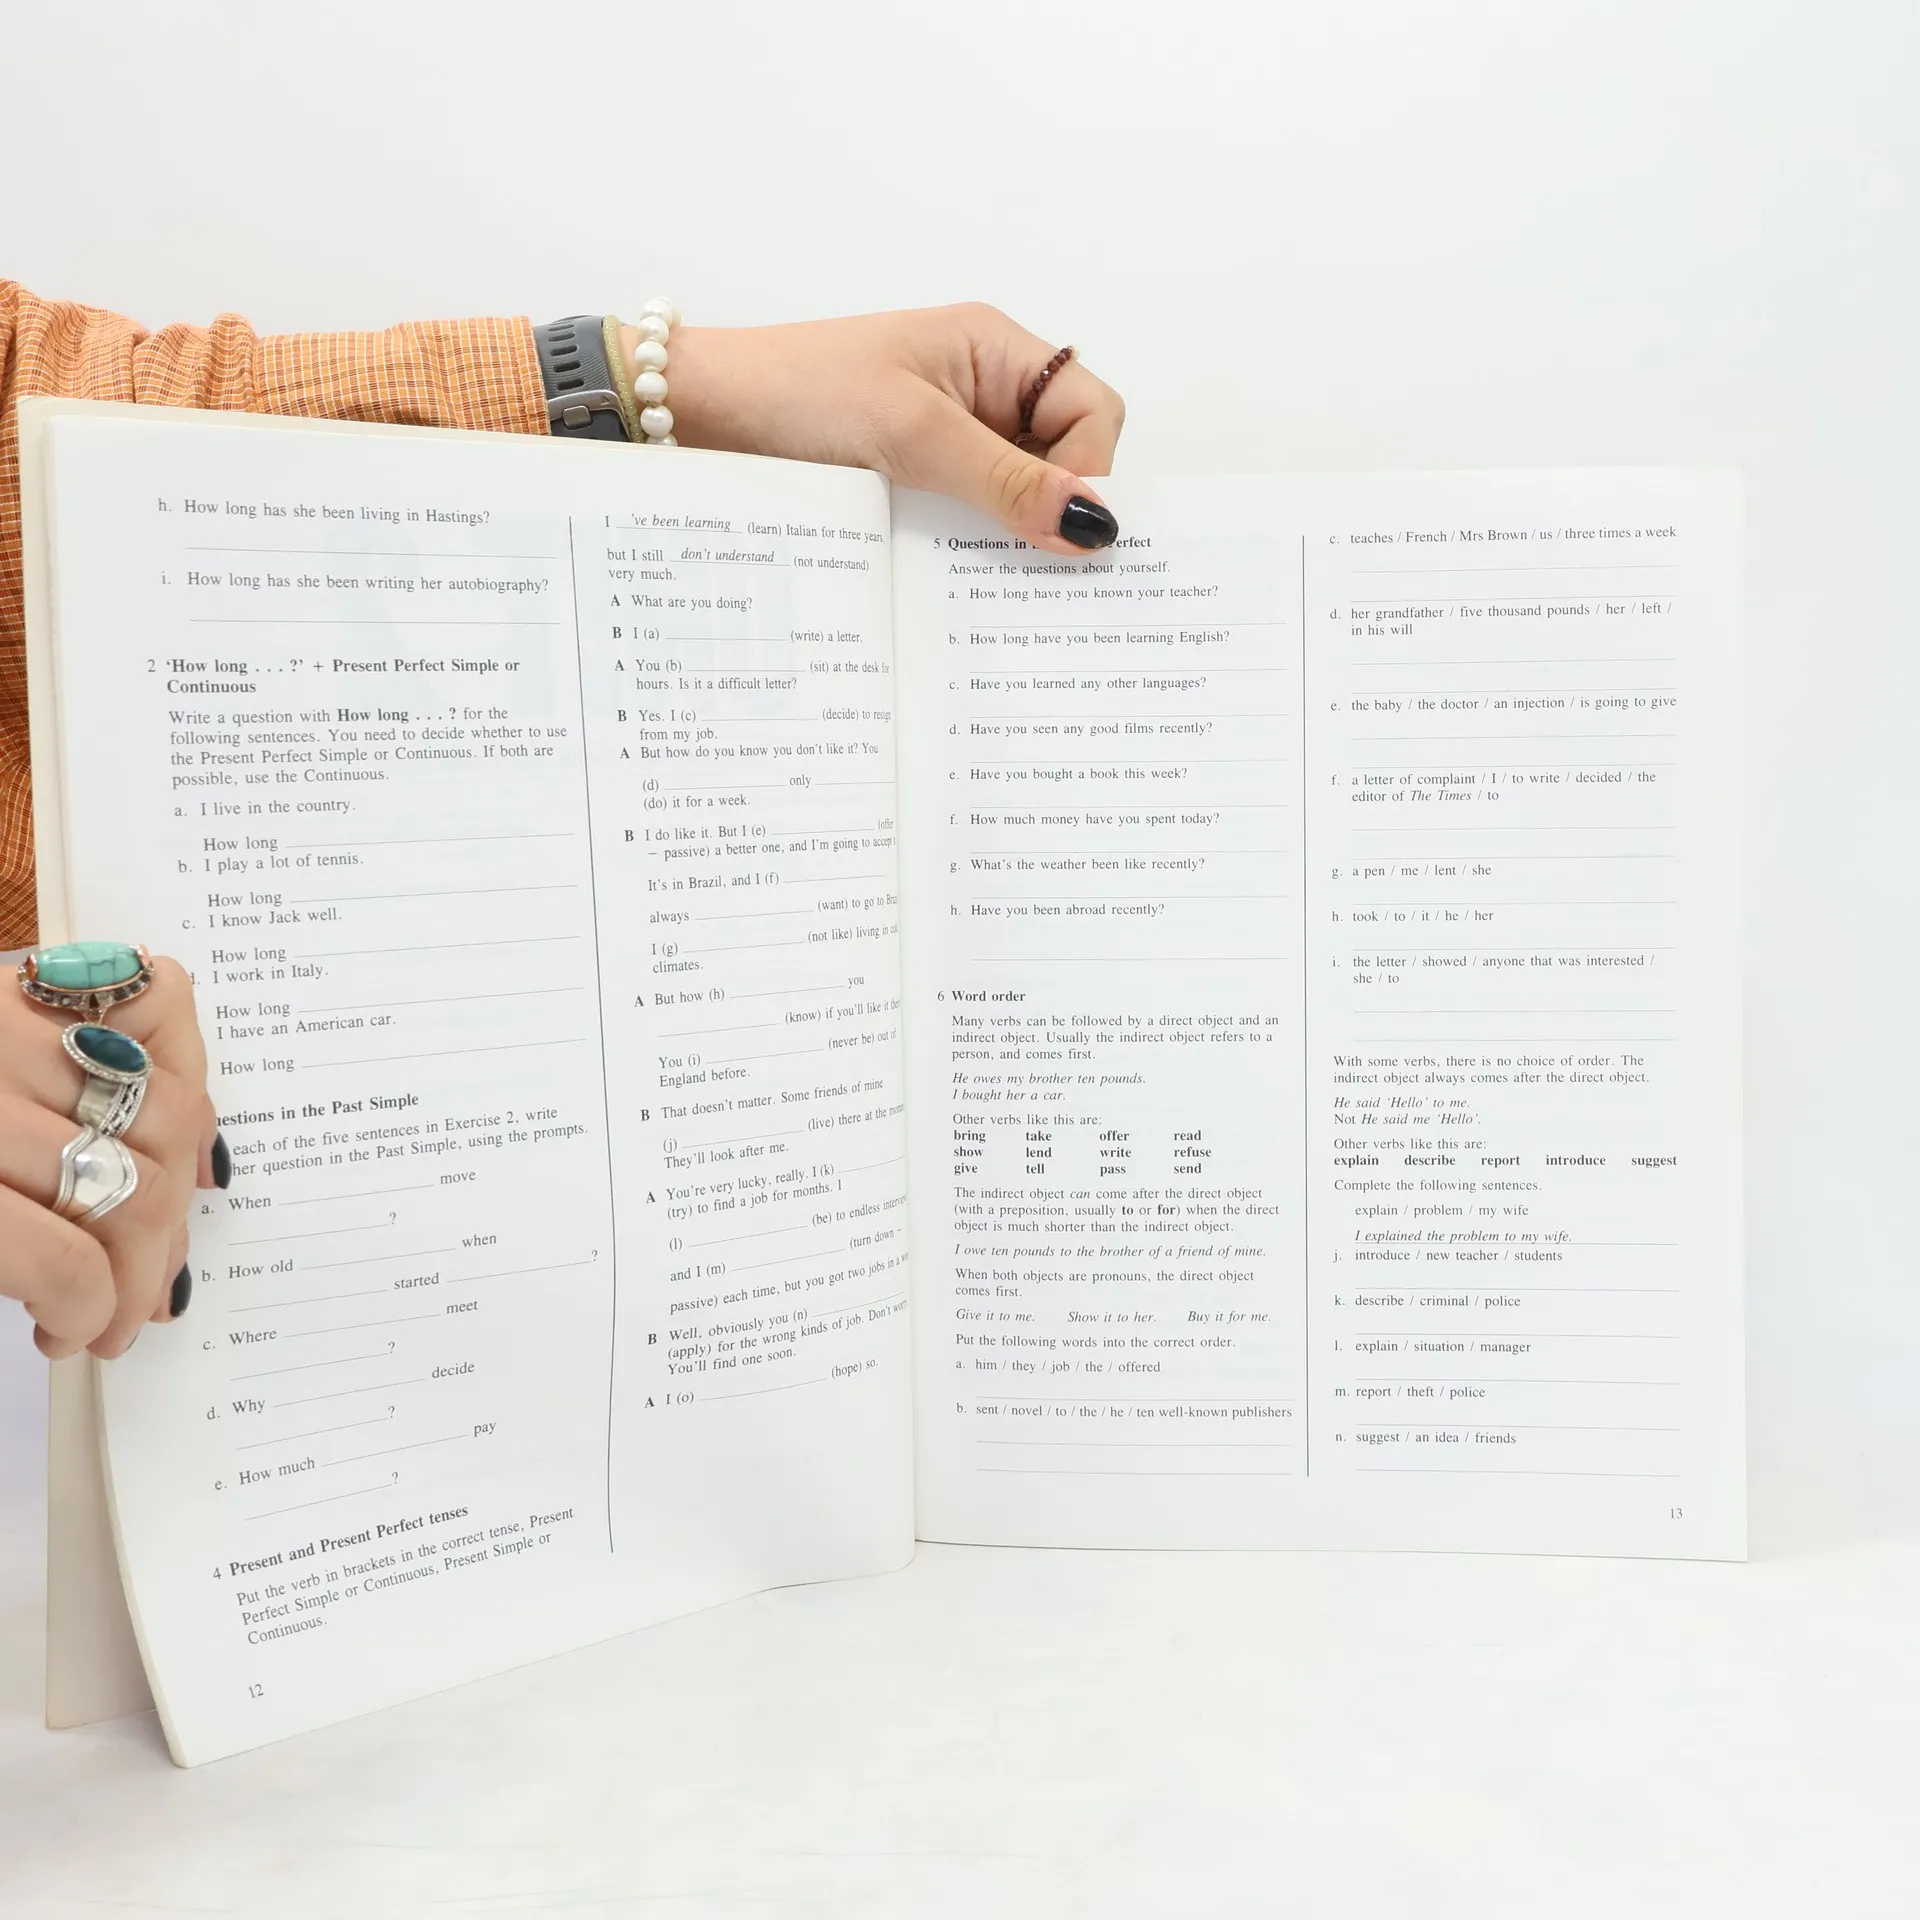 h. How long has she been living in Hastings?
i. How long has she been writing her autobiography?
2 ‘How long . . . ?’ + Present Perfect Simple or
Continuous
Write a question with How long . . . ? for the
following sentences. You need to decide whether to use
the Present Perfect Simple or Continuous. If both are
possible, use the Continuous.
a. I live in the country.
How long
b. I play a lot of tennis.
How long
c. I know Jack well.
How long
I work in Italy.
How long
I have an American car.
How long
in the Past Simple
each of the five sentences in Exercise 2, write
question in the Past Simple, using the prompts.
a. When move
?
b. How old when
started ?
c. Where meet
?
d. Why decide
?
e. How much pay
?
4 Present and Present Perfect tenses
Put the verb in brackets in the correct tense, Present
Perfect Simple or Continuous, Present Simple or
Continuous.
12
I 've been learning (learn) Italian for three years,
but I still don't understand (not understand)
very much.
A What are you doing?
B I (a) (write) a letter.
A You (b) (sit) at the desk for
hours. Is it a difficult letter?
B Yes. I (c) (decide) to resign
from my job.
A But how do you know you don't like it? You
(d) only
(do) it for a week.
B I do like it. But I (e) (offer
– passive) a better one, and I'm going to accept
It's in Brazil, and I (f)
always (want) to go to
I (g) (not like) living in
climates.
A But how (h) you
(know) if you'll like it
You (i) (never be) out of
England before.
B That doesn't matter. Some friends of mine
(j) (live) there at the
They'll look after me.
A You're very lucky, really. I (k)
(try) to find a job for months. I
(l) (be) to endless
and I (m) (turn down –
passive) each time, but you got two jobs in a
B Well, obviously you (n)
(apply) for the wrong kinds of job. Don't
You'll find one soon.
A I (o) (hope) so.
5 Questions in
Answer the questions about yourself.
a. How long have you known your teacher?
b. How long have you been learning English?
c. Have you learned any other languages?
d. Have you seen any good films recently?
e. Have you bought a book this week?
f. How much money have you spent today?
g. What's the weather been like recently?
h. Have you been abroad recently?
6 Word order
Many verbs can be followed by a direct object and an
indirect object. Usually the indirect object refers to a
person, and comes first.
He owes my brother ten pounds.
I bought her a car.
Other verbs like this are:
bring take offer read
show lend write refuse
give tell pass send
The indirect object can come after the direct object
(with a preposition, usually to or for) when the direct
object is much shorter than the indirect object.
I owe ten pounds to the brother of a friend of mine.
When both objects are pronouns, the direct object
comes first.
Give it to me. Show it to her. Buy it for me.
Put the following words into the correct order.
a. him / they / job / the / offered
b. sent / novel / to / the / he / ten well-known publishers
c. teaches / French / Mrs Brown / us / three times a week
d. her grandfather / five thousand pounds / her / left /
in his will
e. the baby / the doctor / an injection / is going to give
f. a letter of complaint / I / to write / decided / the
editor of The Times / to
g. a pen / me / lent / she
h. took / to / it / he / her
i. the letter / showed / anyone that was interested /
she / to
With some verbs, there is no choice of order. The
indirect object always comes after the direct object.
He said ‘Hello’ to me.
Not He said me ‘Hello’.
Other verbs like this are:
explain describe report introduce suggest
Complete the following sentences.
explain / problem / my wife
I explained the problem to my wife.
j. introduce / new teacher / students
k. describe / criminal / police
l. explain / situation / manager
m. report / theft / police
n. suggest / an idea / friends
13